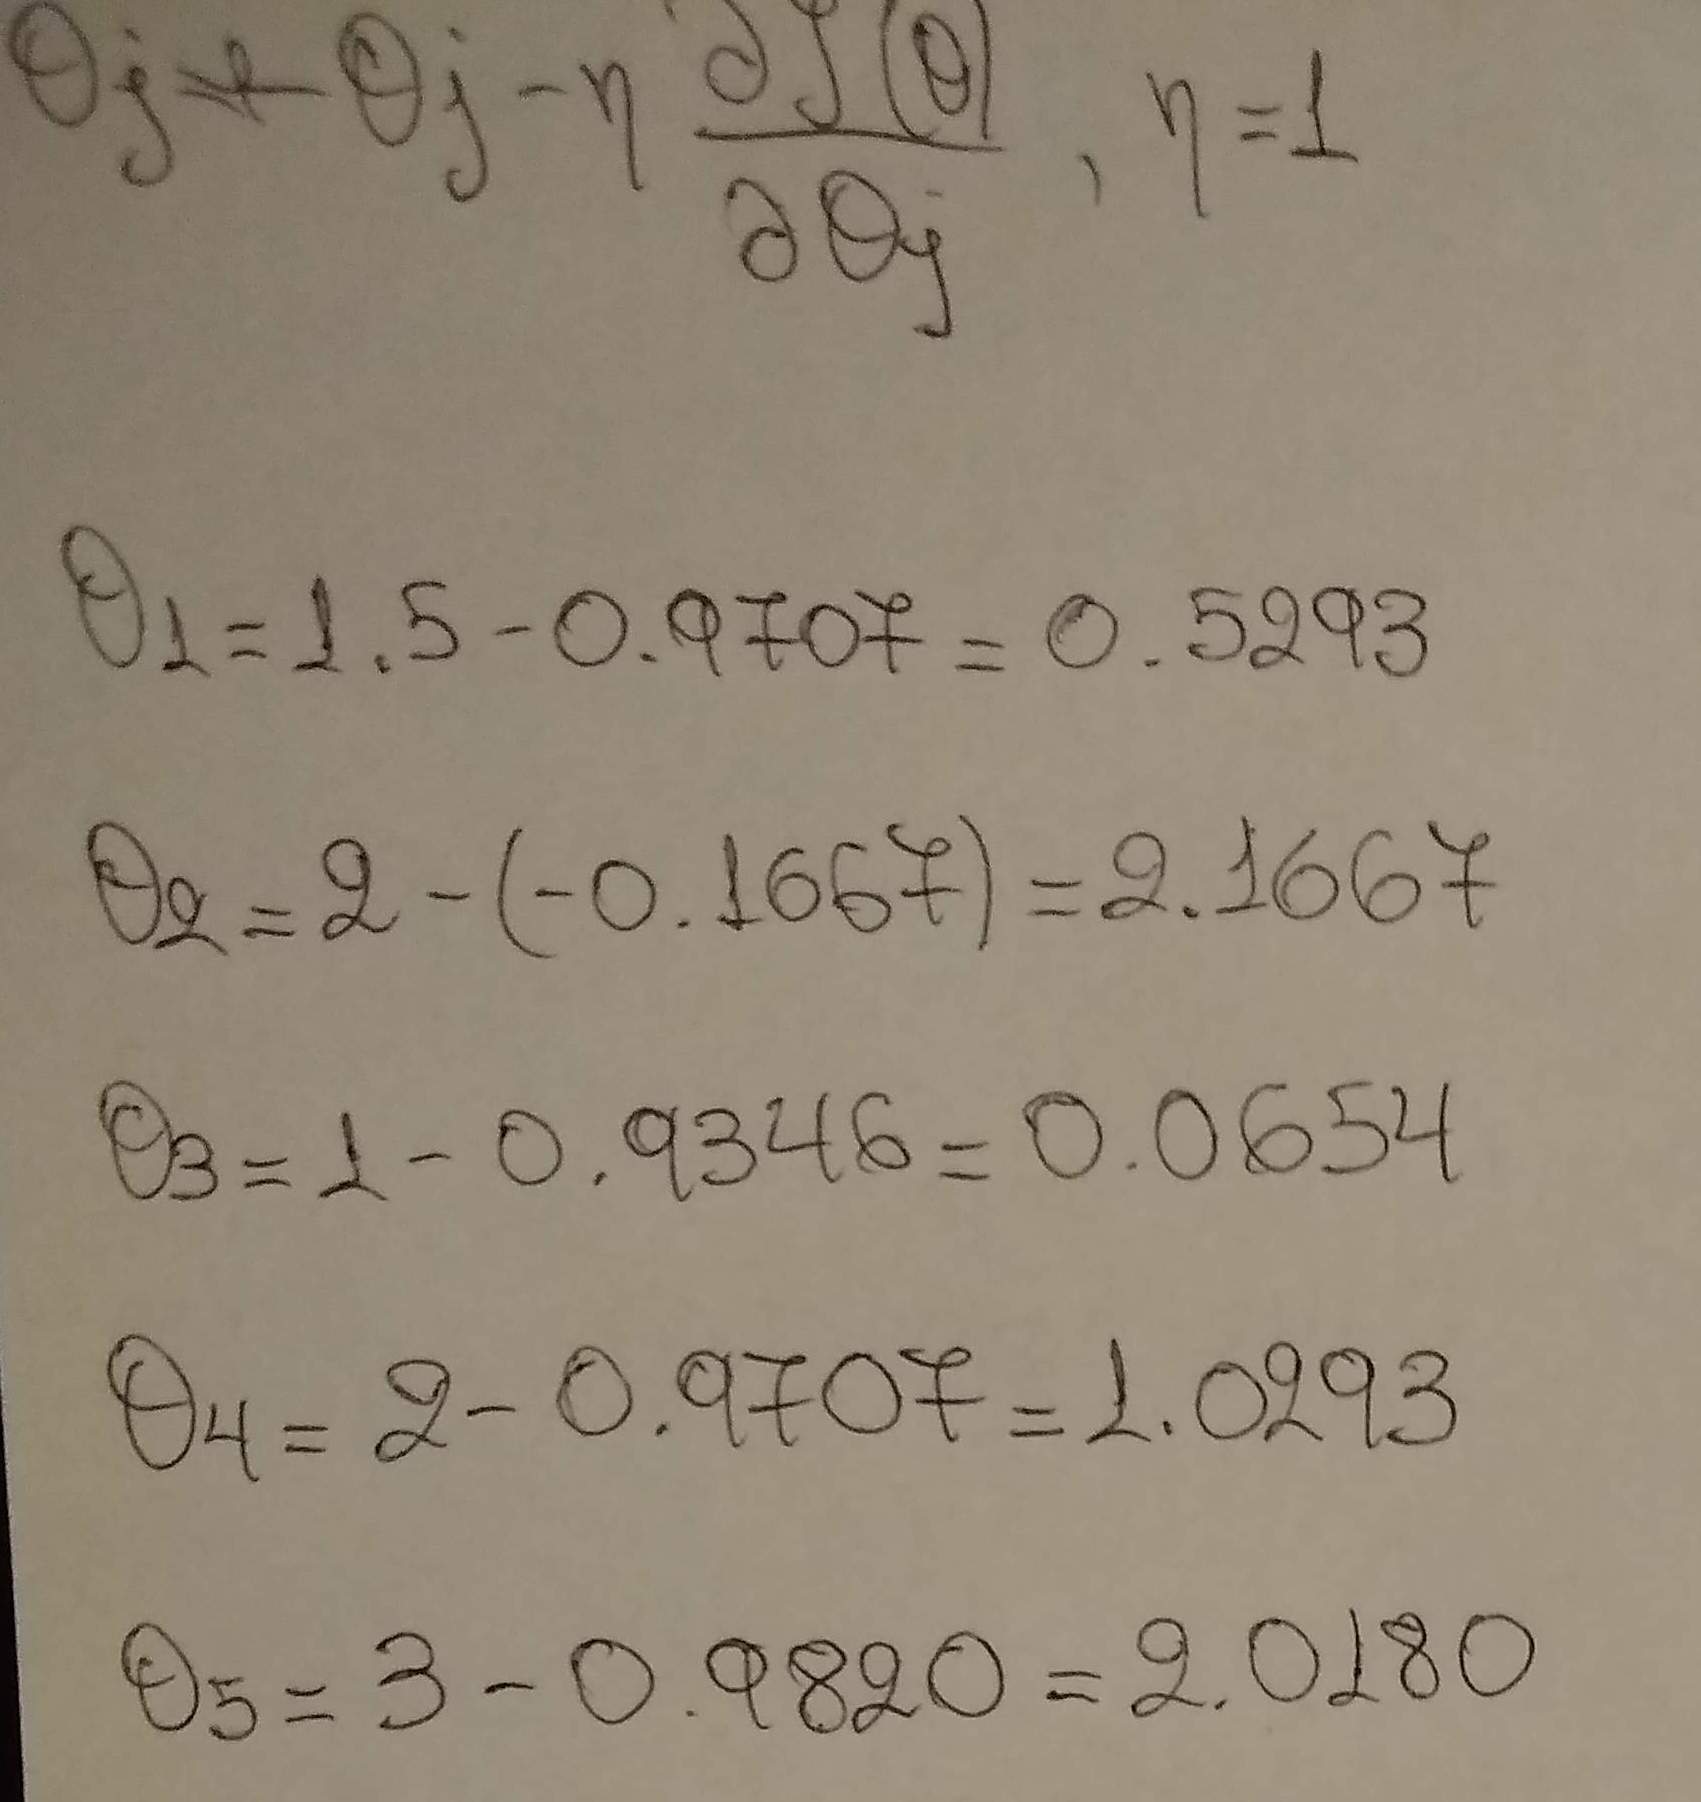 θj ← θj - η ∂J(θ)/∂θj , η = 1
θ1 = 1.5 - 0.9707 = 0.5293
θ2 = 2 - (-0.1667) = 2.1667
θ3 = 1 - 0.9346 = 0.0654
θ4 = 2 - 0.9707 = 1.0293
θ5 = 3 - 0.9820 = 2.0180